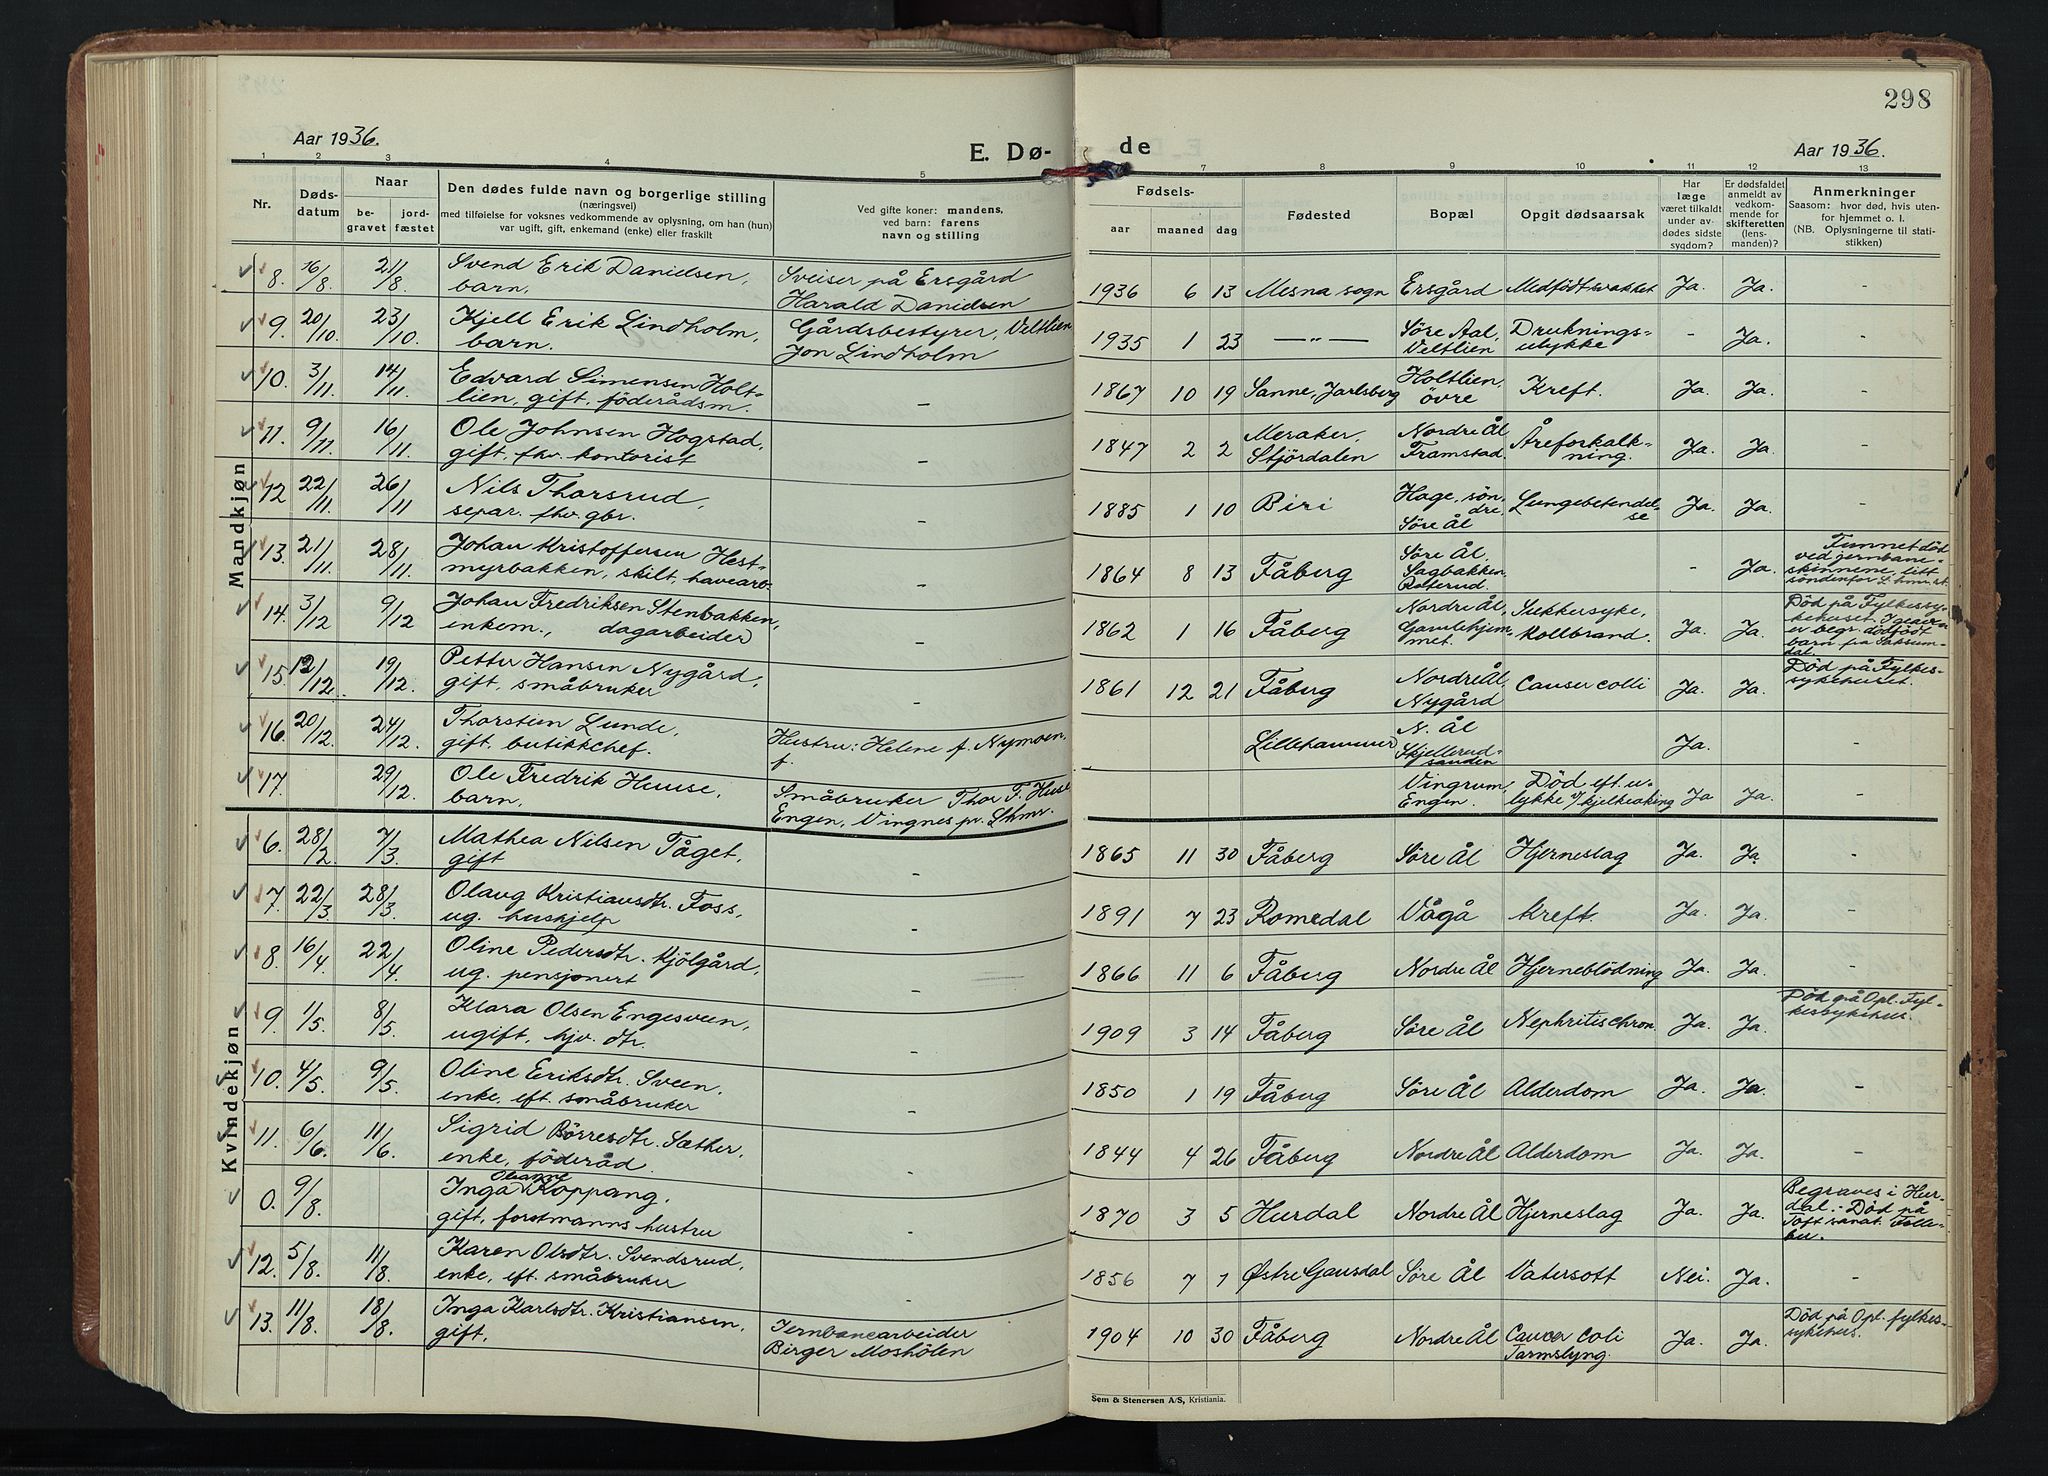 298
Aar 1936.
E. Dø-
de
Aar 1936.
1 2 3 4 5 7 8 9 10 11 12 13
Nr.
Døds-
datum
Naar
be-
gravet
jord-
fæstet
Den dødes fulde navn og borgerlige stilling
(næringsvei)
med tilføielse for voksnes vedkommende av oplysning, om han (hun)
var ugift, gift, enkemand (enke) eller fraskilt
Ved gifte koner: mandens,
ved barn: farens
navn og stilling
Fødsels-
aar maaned dag
Fødested
Bopæl
Opgit dødsaarsak
Har
læge
været tilkaldt
under av-
dødes sidste
sygdom?
Er dødsfaldet
anmeldt av
vedkom-
mende for
skifteretten
(lens-
manden)?
Anmerkninger
Saasom: hvor død, hvis uten-
for hjemmet o. l.
(NB. Oplysningerne til stati-
stikken)
Mandkjøn
8. 16/8 21/8 Svend Erik Danielsen,
barn.
Sveiser på Ersgård
Harald Danielsen
1936 6 13 Mesna sogn Ersgård Medfödt svakhet Ja. Ja. -
9. 20/10 23/10 Kjell Erik Lindholm,
barn.
Gårdsbestyrer, Veltlien
Jon Lindholm
1935 1 23 —"— Søre Aal,
Veltlien
Druknings-
ulykke
- Ja.
10. 3/11 14/11 Edvard Simensen Holt-
lien, gift, föderådsm.
-
1867 10 19 Sanne, Jarlsberg Holtlien,
övre
Kreft. Ja. Ja. -
11. 9/11 16/11 Ole Johnsen Hogstad,
gift, fhv. kontorist
-
1847 2 2 Meraker,
Stjördalen
Nordre Ål
Framstad.
Åreforkalk-
ning.
Ja. Ja. -
12 22/11 26/11 Nils Thorsrud,
separ. fhv. gbr.
-
1885 1 10 Biri Hage, søn-
dre,
Søre Ål
Lungebetendel-
se
Ja. Ja. -
13. 21/11 28/11 Johan Kristoffersen Hest-
myrbakken, skilt, havearb.
-
1864 8 13 Fåberg Søre Ål,
Sagbakken,
Roterud
- Ja.
Funnet död
ved jernbane-
skinnene, litt
söndenfor Lhmr. st.
14. 3/12 9/12 Johan Fredriksen Stenbakken,
enkem., dagarbeider
-
1862 1 16 Fåberg Nordre Ål
Gamlehjem-
met.
Sukkersyke,
Kollbrand.
Ja. Ja.
Död på Fylkessy-
kehuset. I graven
er begr. dødfødt
barn fra Saksum-
dal.
15. 12/12 19/12 Petter Hansen Nygård,
gift, småbruker
-
1861 12 21 Fåberg Nordre Ål,
Nygård
Cancer colli Ja. Ja.
Død på Fylkes-
sykehuset.
16. 20/12 24/12 Thorstein Lunde,
gift, butikkchef.
Hustru: Helene f. Nymoen.
f.
Lillehammer N. Ål
Skjellerud-
sanden
Ja. -
17. 29/12 Ole Fredrik Huuse,
barn.
Småbruker Thor F. Huse
Engen, Vingnes pr. Lhmr.
Vingrum,
Engen.
Död eft. u-
lykke v/ kjelkeaking
Ja Ja. -
Kvindekjøn
6. 28/2 7/3 Mathea Nilsen Tåget,
gift
-
1865 11 30 Fåberg Søre Ål Hjerneslag Ja. Ja. -
7. 22/3 28/3 Olaug Kristiansdtr. Foss,
ug. huskjelp
-
1891 7 23 Romedal Vågå Kreft. Ja. Ja. -
8. 16/4 22/4 Oline Pedersdtr. Kjölgård,
ug. pensjonert
-
1866 11 6 Fåberg Nordre Ål Hjerneblödning Ja. Ja. -
9. 1/5 8/5 Klara Olsen Engesveen,
ugift, hjv. dtr.
1909 3 14 Fåberg Søre Ål Nephritis chron. Ja. Ja.
Död på Opl. Fyl-
kessykehus.
10. 4/5 9/5 Oline Eriksdtr. Sveen,
enke, eft. småbruker
-
1850 1 19 Fåberg Søre Ål Alderdom Ja. Ja -
11. 6/6 11/6 Sigrid Börresdtr. Sæther,
enke, föderåd.
-
1844 4 26 Fåberg Nordre Ål Alderdom Ja. Ja. -
0. 9/8 Inga Oliane Koppang,
gift, forstmanns hustru
-
1870 3 5 Hurdal Nordre Ål Hjerneslag Ja. Ja.
Begraves i Hur-
dal. - Död på
Toft sanat. Folle-
bu.
12. 5/8 11/8 Karen Olsdtr. Svendsrud,
enke, eft. småbruker
-
1856 7 7 Østre Gausdal Søre Ål Vatersott Nei. Ja. -
13. 11/8 18/8 Inga Karlsdtr. Kristiansen,
gift,
Jernbanearbeider
Birger Moshölen
1904 10 30 Fåberg Nordre Ål Cancer coli
Tarmslyng.
Ja. Ja.
Död på Opl. fylkes-
sykehus.
Sem & Stenersen A/S, Kristiania.